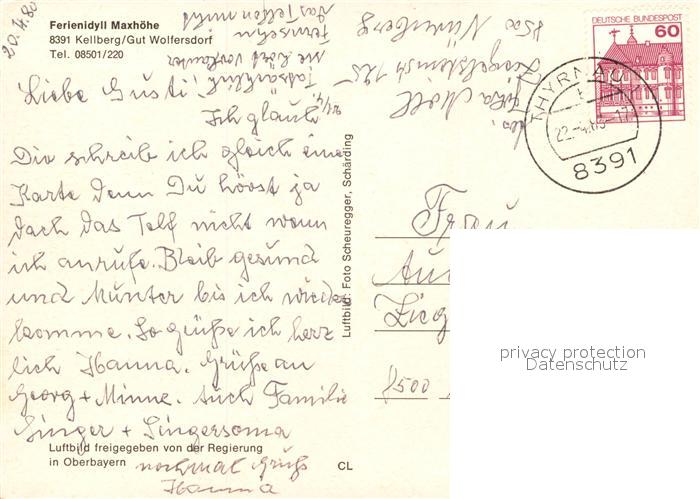 20.4.80
Ferienidyll Maxhöhe
8391 Kellberg/Gut Wolfersdorf
Tel. 08501/220
Liebe Gusti!
Ich glaub
Dir schreib ich gleich eine
Karte denn Du hörst ja
doch das Telf nicht wenn
ich anrufe. Bleib gesund
und Munter bis ich wieder
komme. So grüße ich herz
lich Hanna. Grüße an
Georg + Minne. Auch Familie
Singer + Singersoma
Luftbild freigegeben von der Regierung
in Oberbayern
nochmal Gruß
Hanna
CL
Luftbild: Foto Scheuregger, Schärding
8500 Nürnberg
Fernsehn
das Telefon nicht
DEUTSCHE BUNDESPOST
60
THYRNAU
22.-4.80-17
8391
Frau
Zieg
8500
privacy protection
Datenschutz